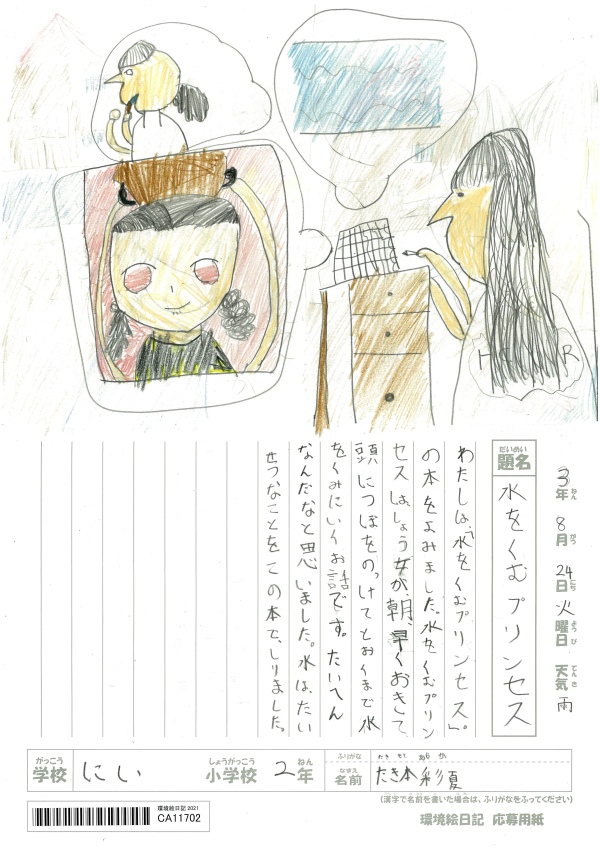 3年 8月 24日 火曜日 天気 雨
ねん がつ にち ようび てんき
だいめい
題名 水をくむプリンセス
わたしは、「水をくむプリンセス」。
の本をよみました。水をくむプリン
セスは、しょう女が、朝、早くおきて、
頭につぼをのっけてとおくまで水
をくみにいくお話です。たいへん
なんだなと思いました。水は、たい
せつなことをこの本で、しりました。
がっこう しょうがっこう ねん ふりがな
学校 にい 小学校 2年 なまえ 名前 たき本 彩夏
(漢字で名前を書いた場合は、ふりがなをふってください)
環境絵日記 2021
CA11702
環境絵日記 応募用紙